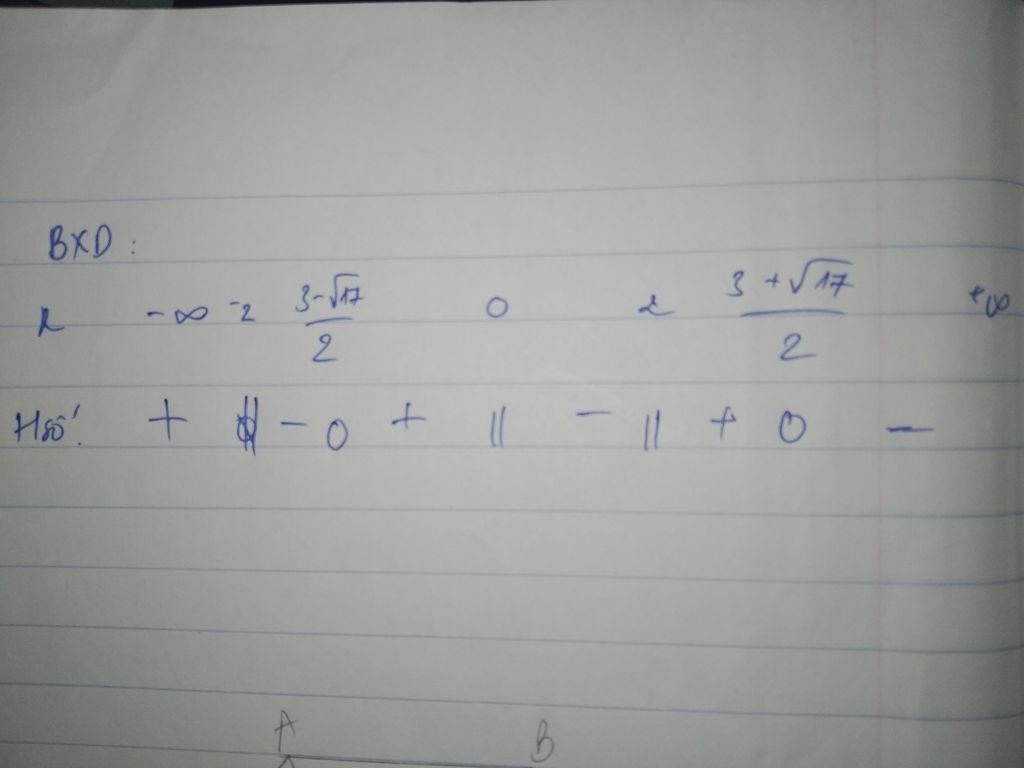 BXD:
x -∞ -2 3-√17/2 0 2 3+√17/2 +∞
Hsố: + || - 0 + || - || + 0 -
A B